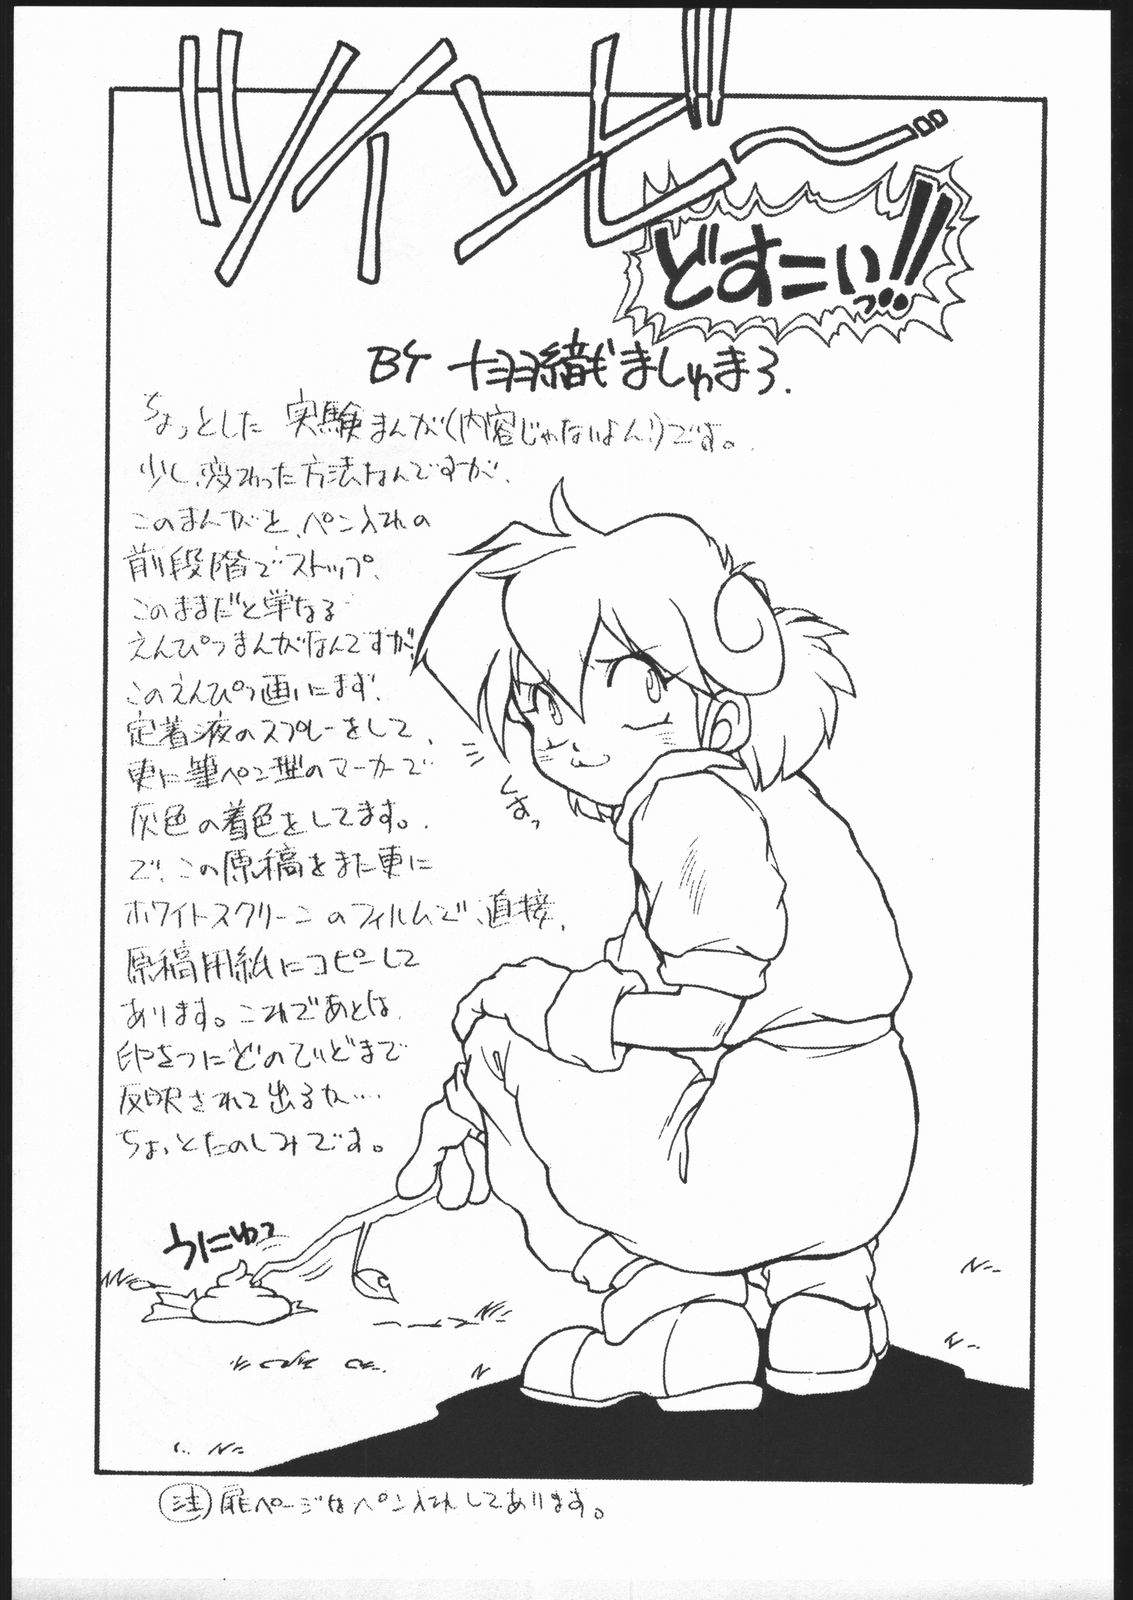 ツインビ〜
どすこいっ!!
BY 十羽織ましゅまろ.
ちょっとした 実験まんが(内容じゃないよん!)です。
少し、変わった方法なんですが、
このまんがと、ペン入れの
前段階でストップ、
このままだと単なる
えんぴつまんがなんですが、
このえんぴつ画にまず、
定着液のスプレーをして、
更に筆ペン型のマーカーで
灰色の着色をしてます。
で、この原稿をまた更に
ホワイトスクリーンのフィルムで、直接、
原稿用紙にコピーして
あります。これであとは、
印をつにどのていどまで
反映されて出るか…
ちょっとたのしみです。
しまっ
うにゅっ
注 扉ページはペン入れしてあります。